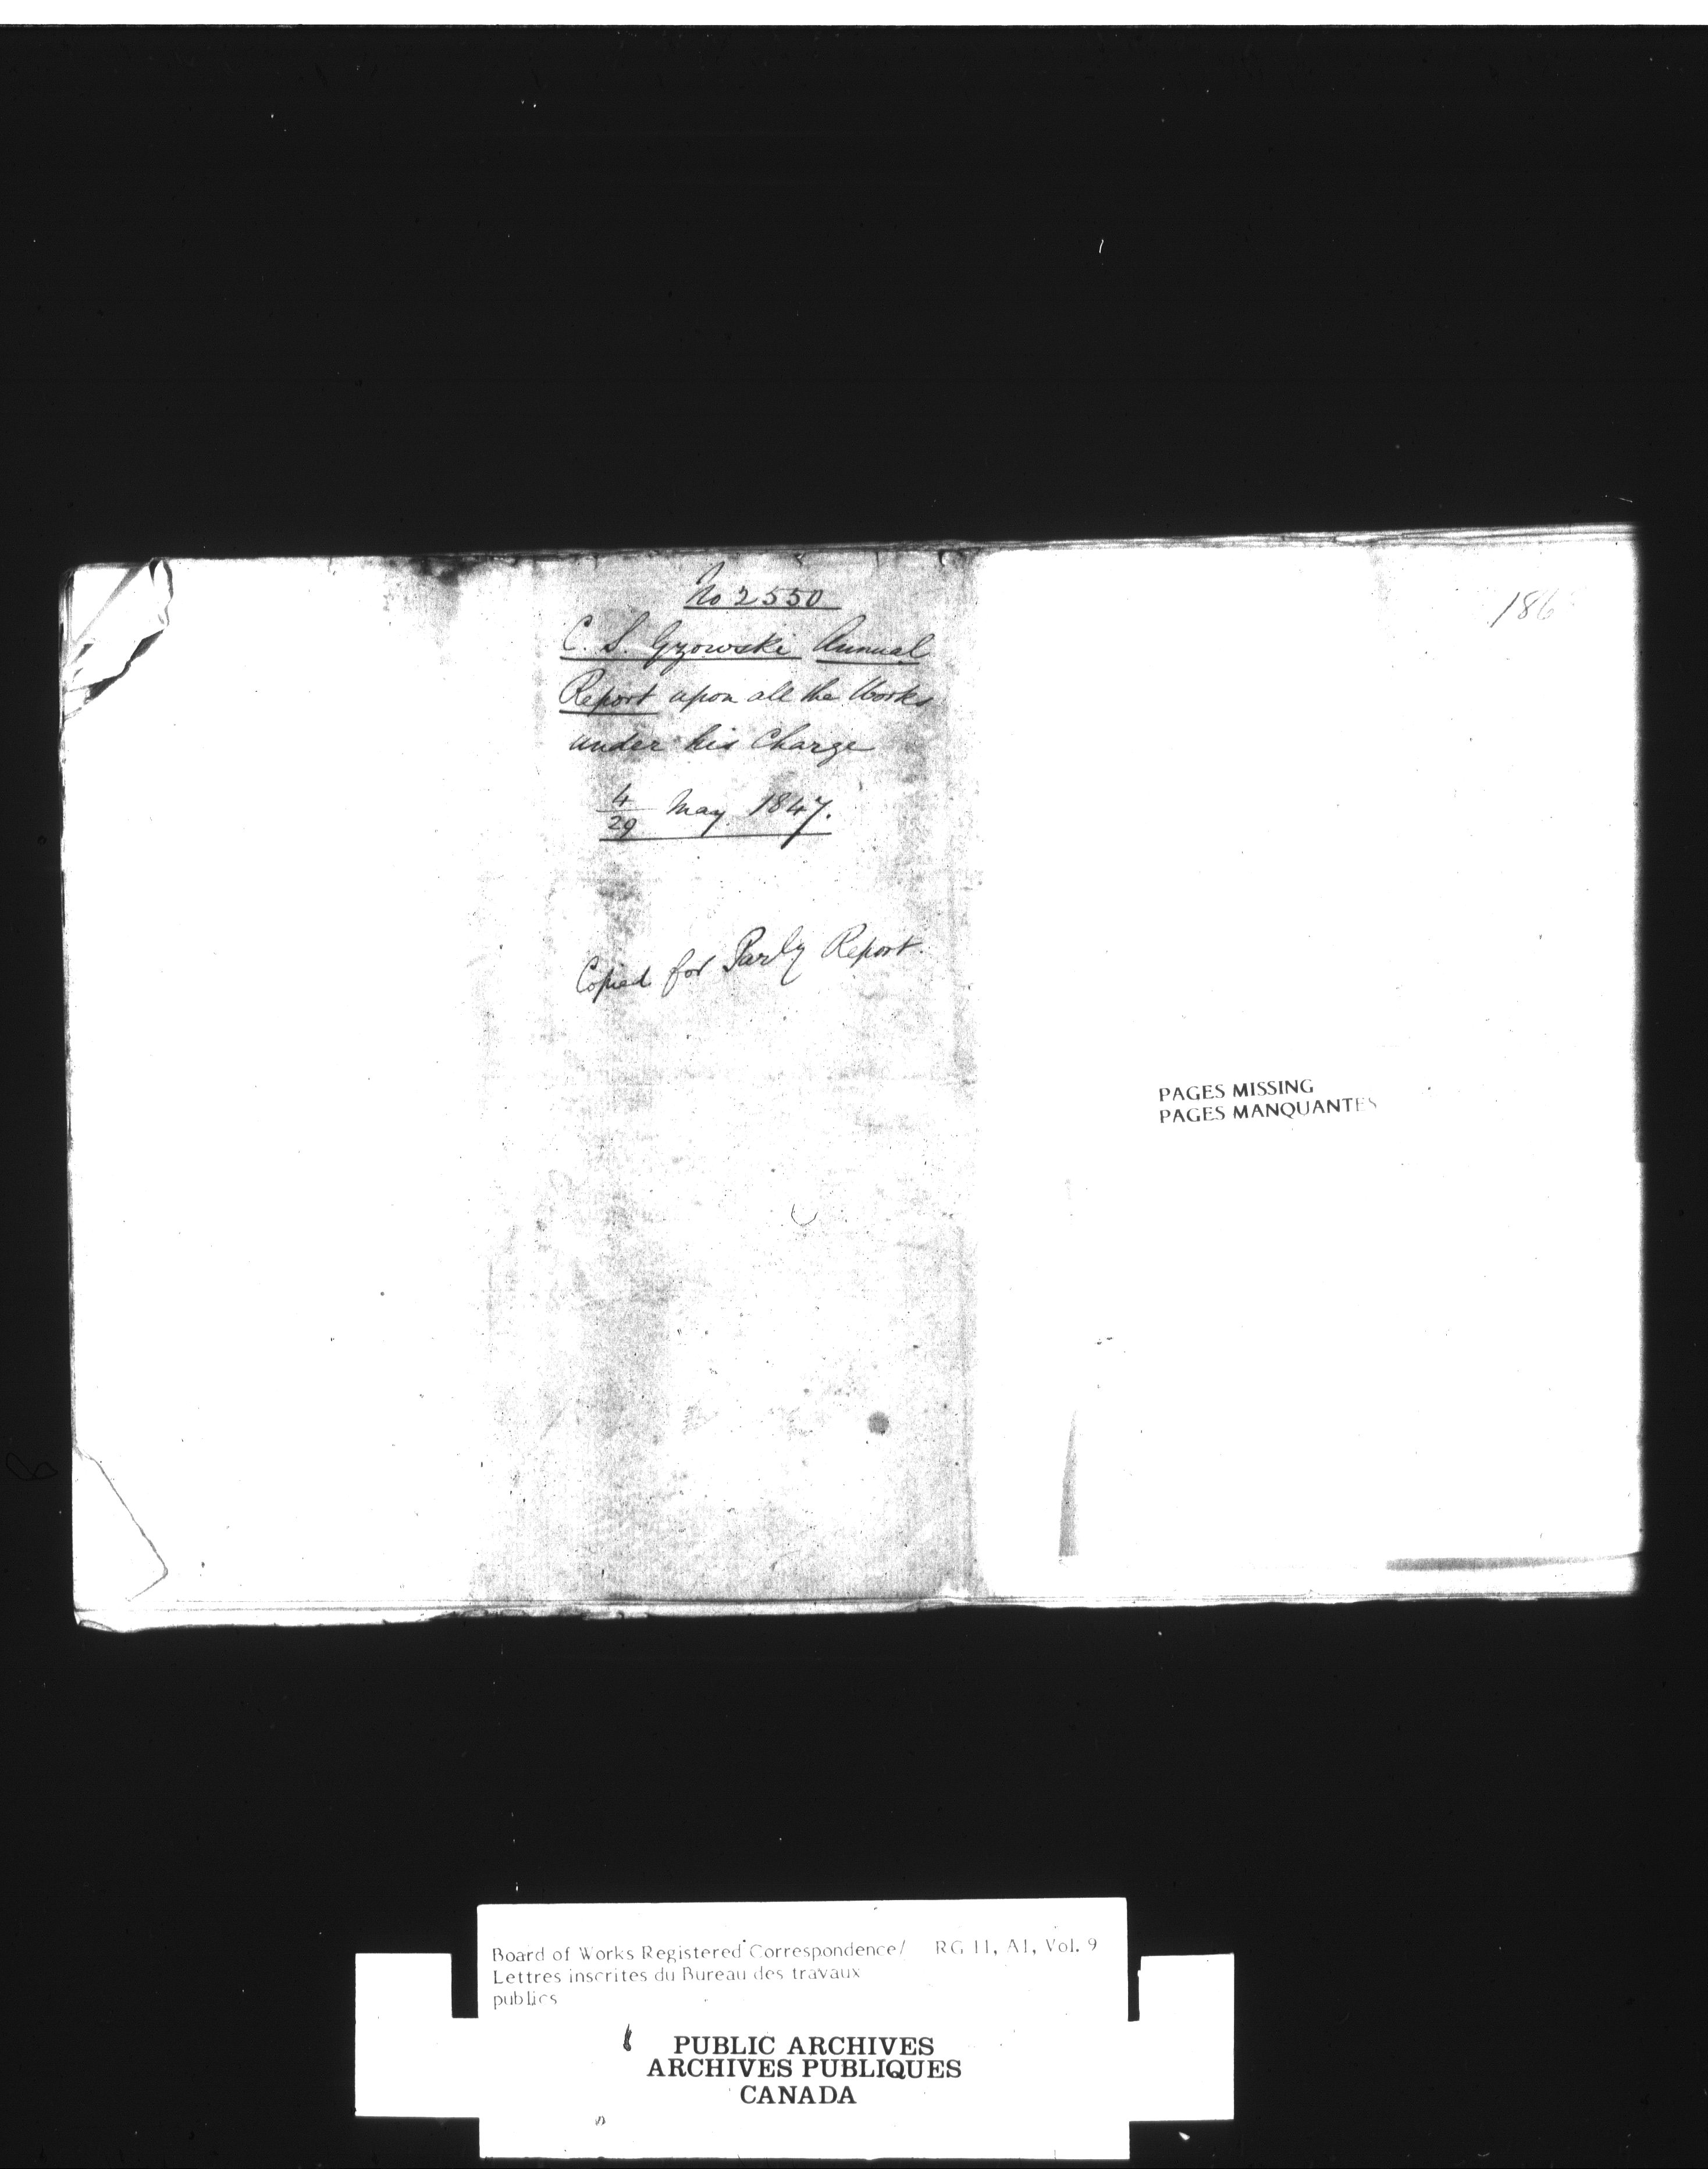 No 2550
C. S. Gzowski Annual
Report upon all the Works
under his Charge
4/29 May 1847.
Copied for Parly Report.
186
PAGES MISSING
PAGES MANQUANTES
Board of Works Registered Correspondence/ RG 11, A1, Vol. 9
Lettres inscrites du Bureau des travaux
publics
PUBLIC ARCHIVES
ARCHIVES PUBLIQUES
CANADA